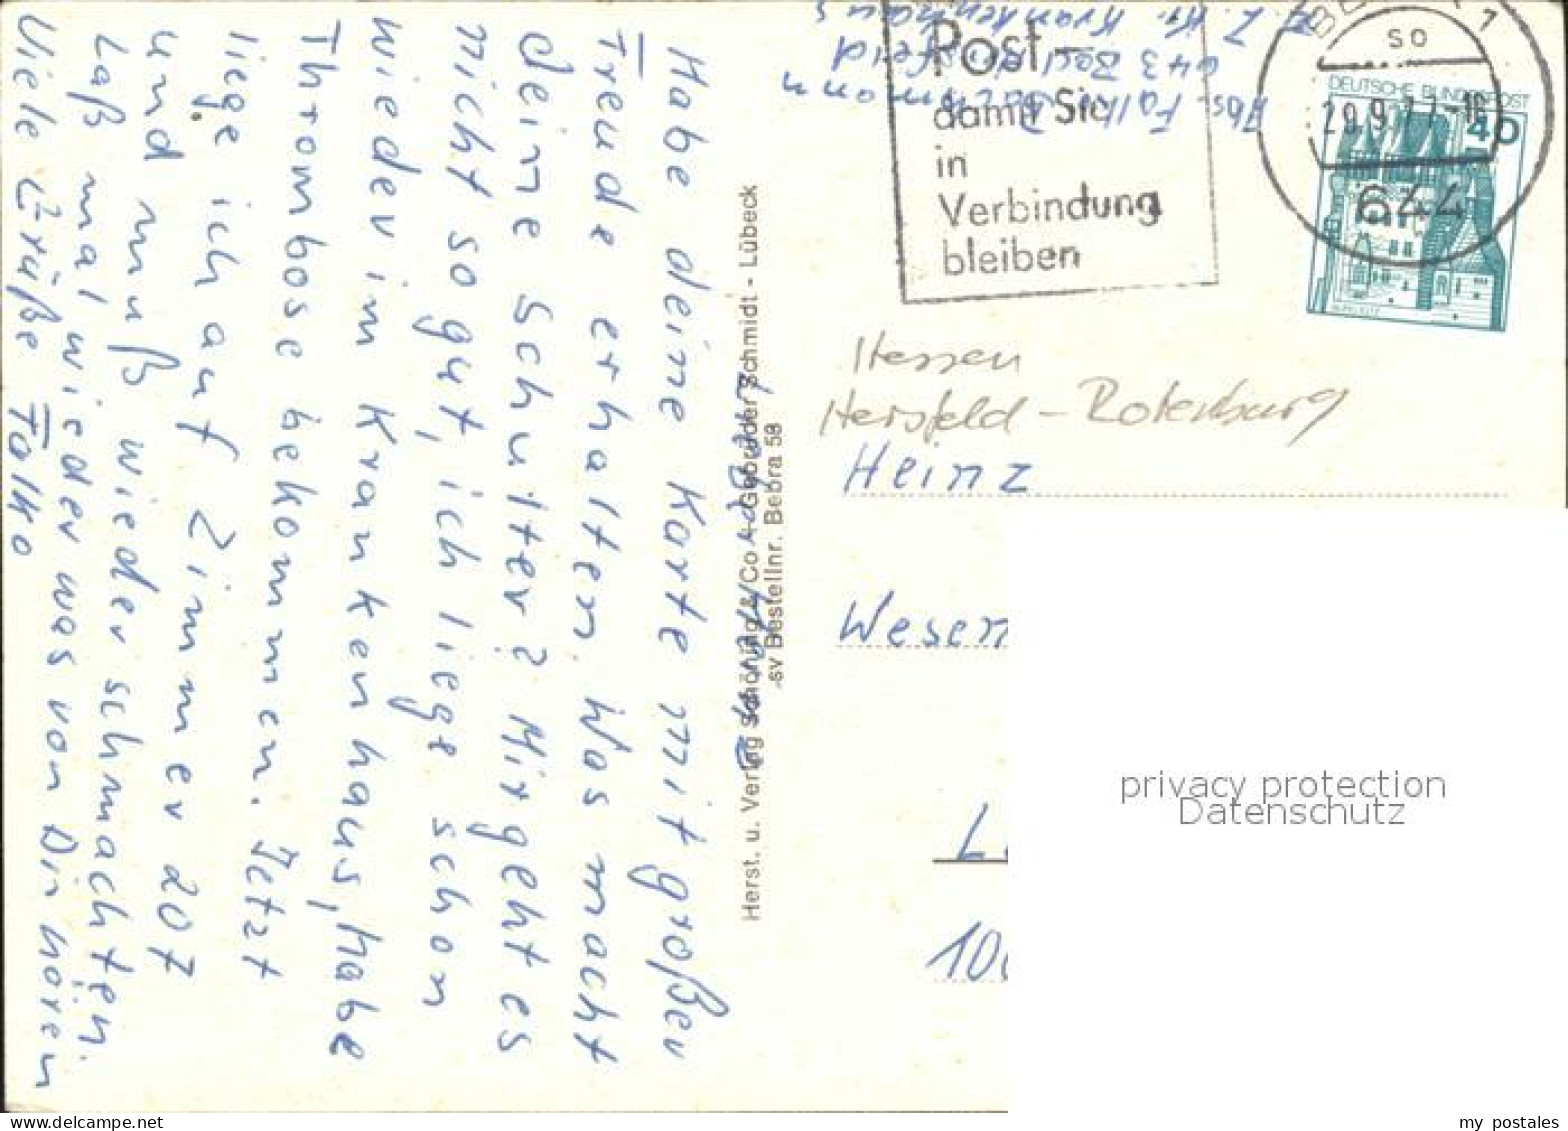 Lieber Heinz
Habe deine Karte mit großer
Freude erhalten. Was macht
deine Schulter? Mir geht es
nicht so gut, ich liege schon
wieder im Krankenhaus, habe
Thrombose bekommen. Jetzt
liege ich auf Zimmer 207
und muß wieder schmachten.
Laß mal wieder was von Dir hören
Viele Grüße Falko
Herst. u. Verlag Schöning & Co + Gebrüder Schmidt - Lübeck
sv Bestellnr. Bebra 58
Abs. Falko
643 Bad Hersfeld
Krankenhaus
Post -
damit Sie
in
Verbindung
bleiben
1
so
29.9.77-16
644
DEUTSCHE BUNDESPOST
40
BURG ELTZ
Hessen
Hersfeld - Rotenburg
Heinz
Wesen
L
100
privacy protection
Datenschutz
my postales
Ansichtskarten-center.de